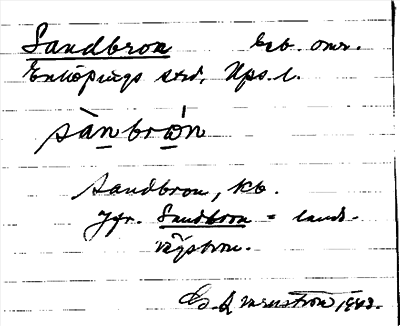 Sandbron beb. omr.
Enköpings stad, Upps. l.
sànbrón
Sandbron, kb.
Jfr. Sandbron = lands-
vägsbron.
1943.